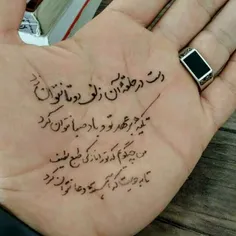 دست در حلقه آن زلف دوتا نتوان کرد
تکیه بر عهد تو و باد صبا نتوان کرد
من چه گویم که تو را نازکی طبع لطیف
تا به حدیست که آهسته دعا نتوان کرد